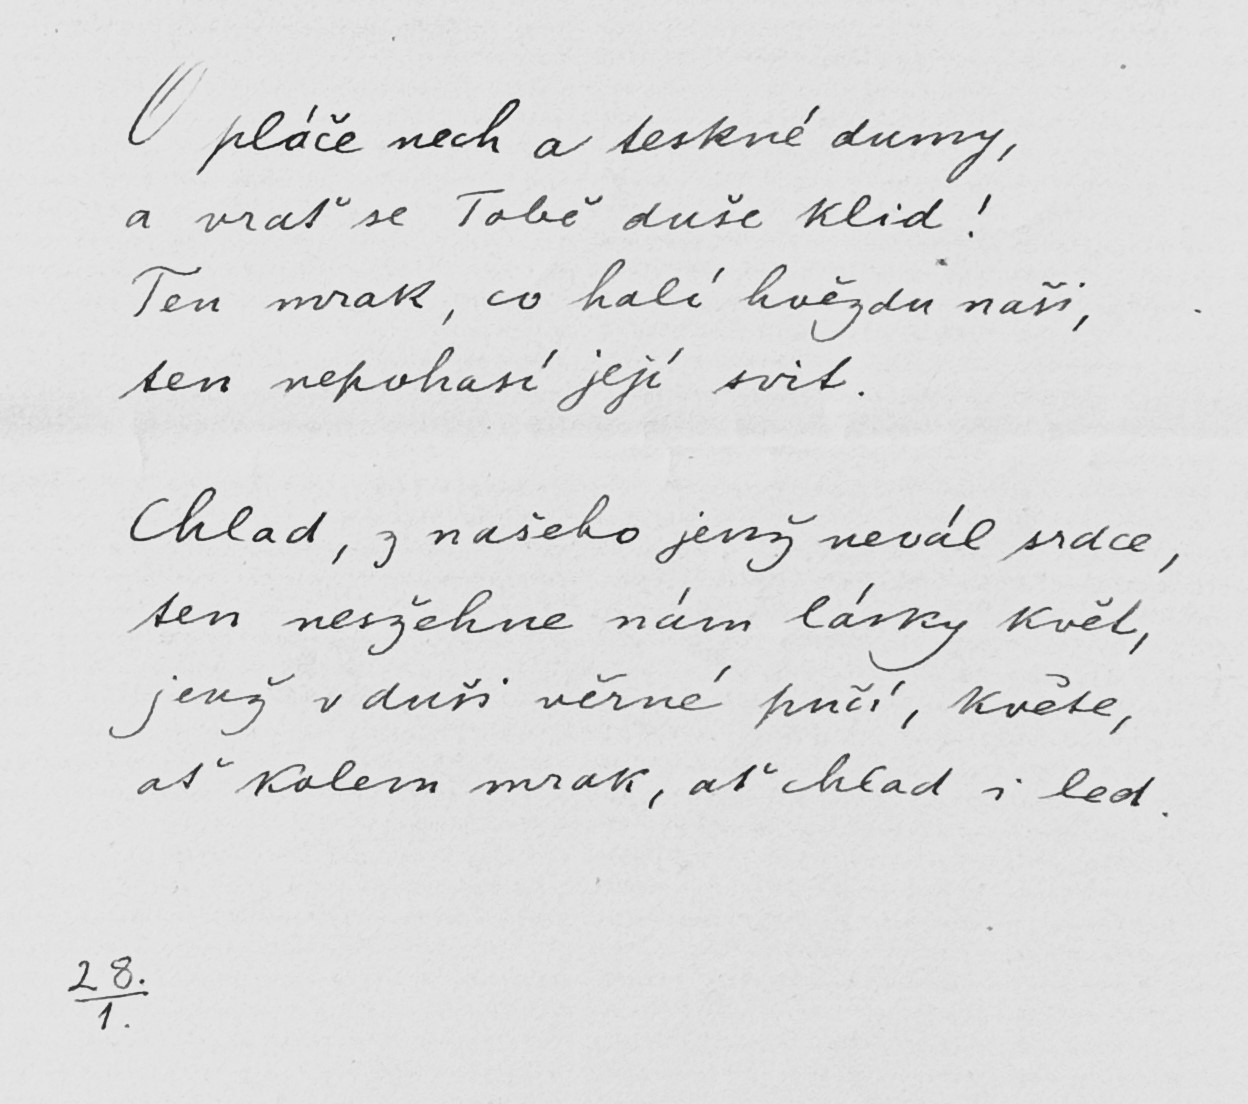 O pláče nech a teskné dumy,
a vrať se Tobě duše klid!
Ten mrak, co halí hvězdu naši,
ten nepohasí její svit.
Chlad, z našeho jenž nevál srdce,
ten nesžehne nám lásky květ,
jenž v duši věrné pučí, květe,
ať kolem mrak, ať chlad i led.
28.
1.